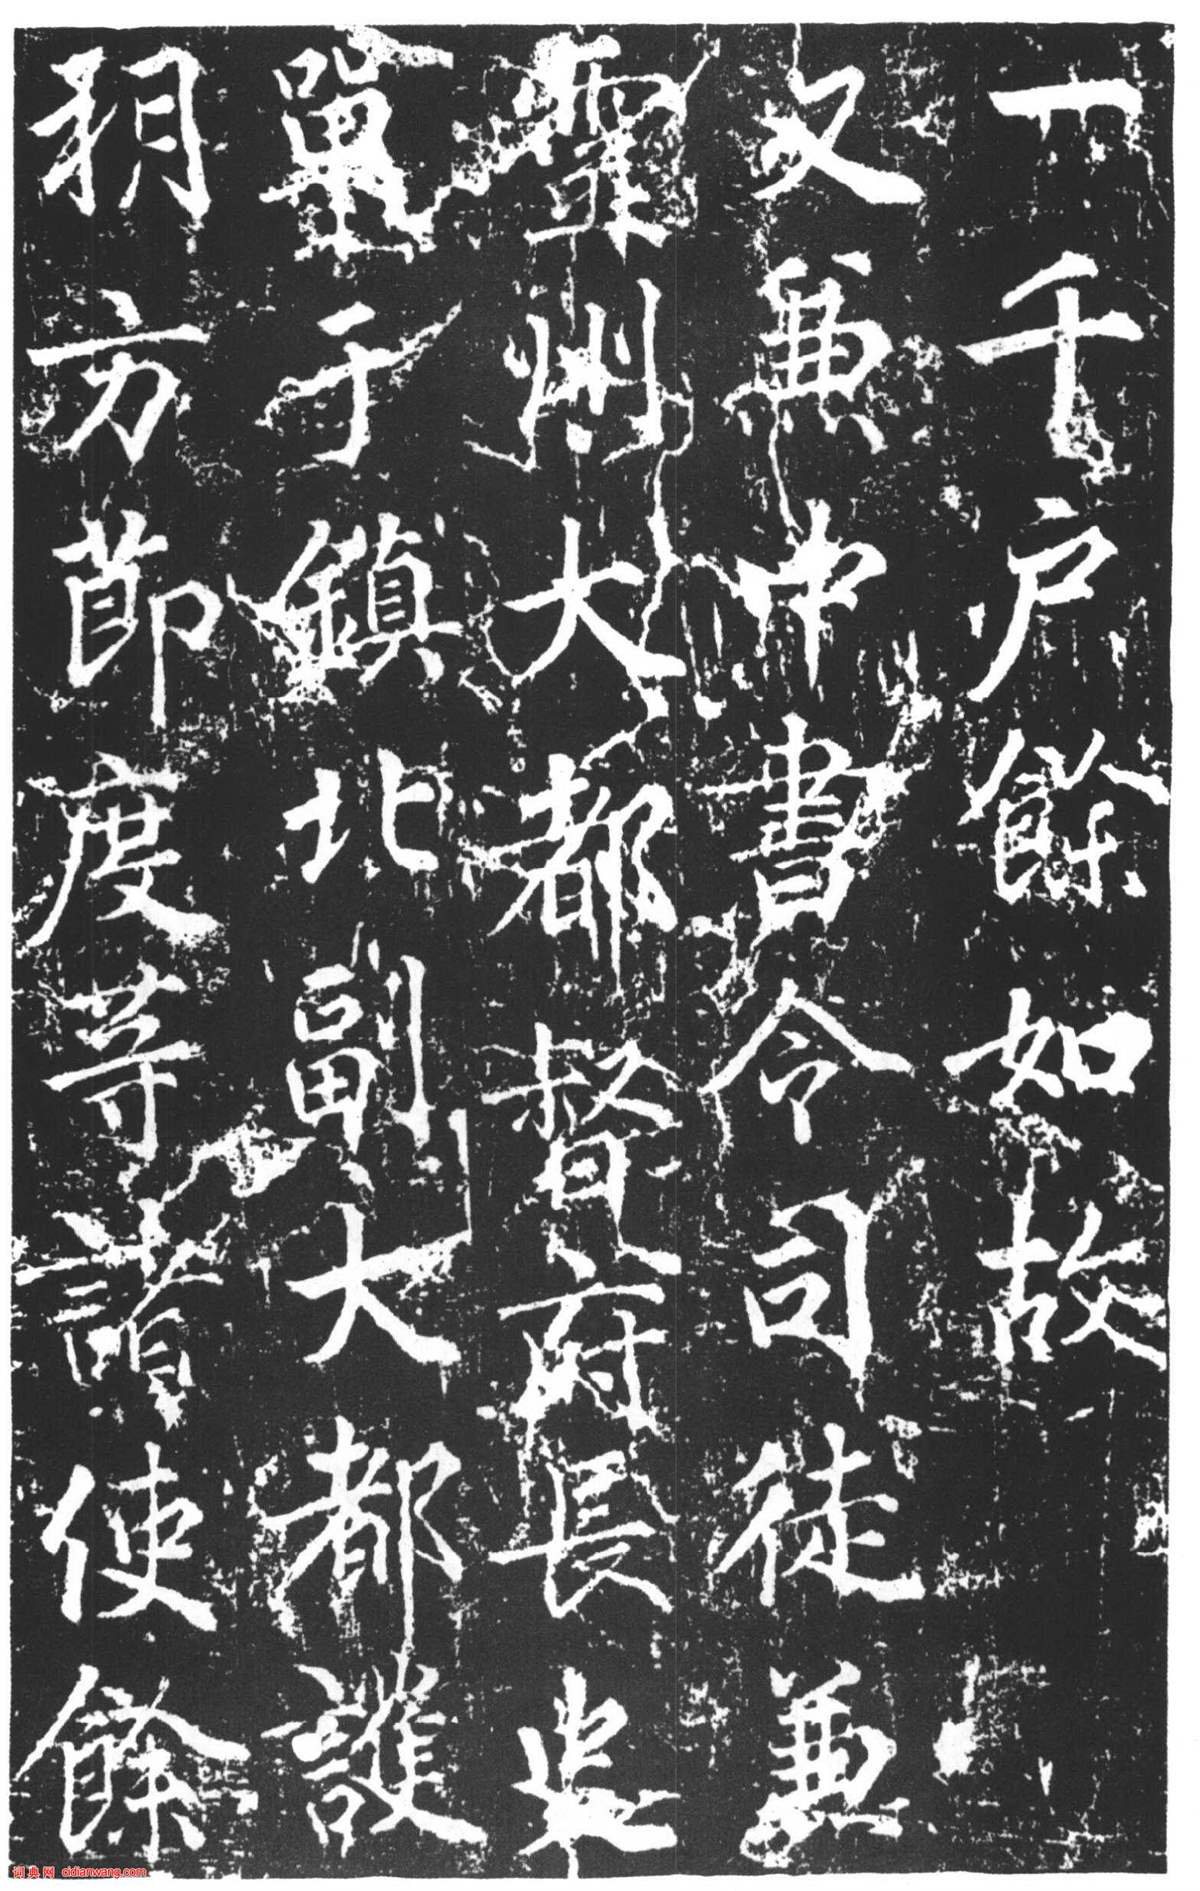 一千户餘如故
又兼中書令司徒兼
靈州大都督府長史
單于鎮北副大都護
朔方節度等諸使餘
词典网 cidianwang.com